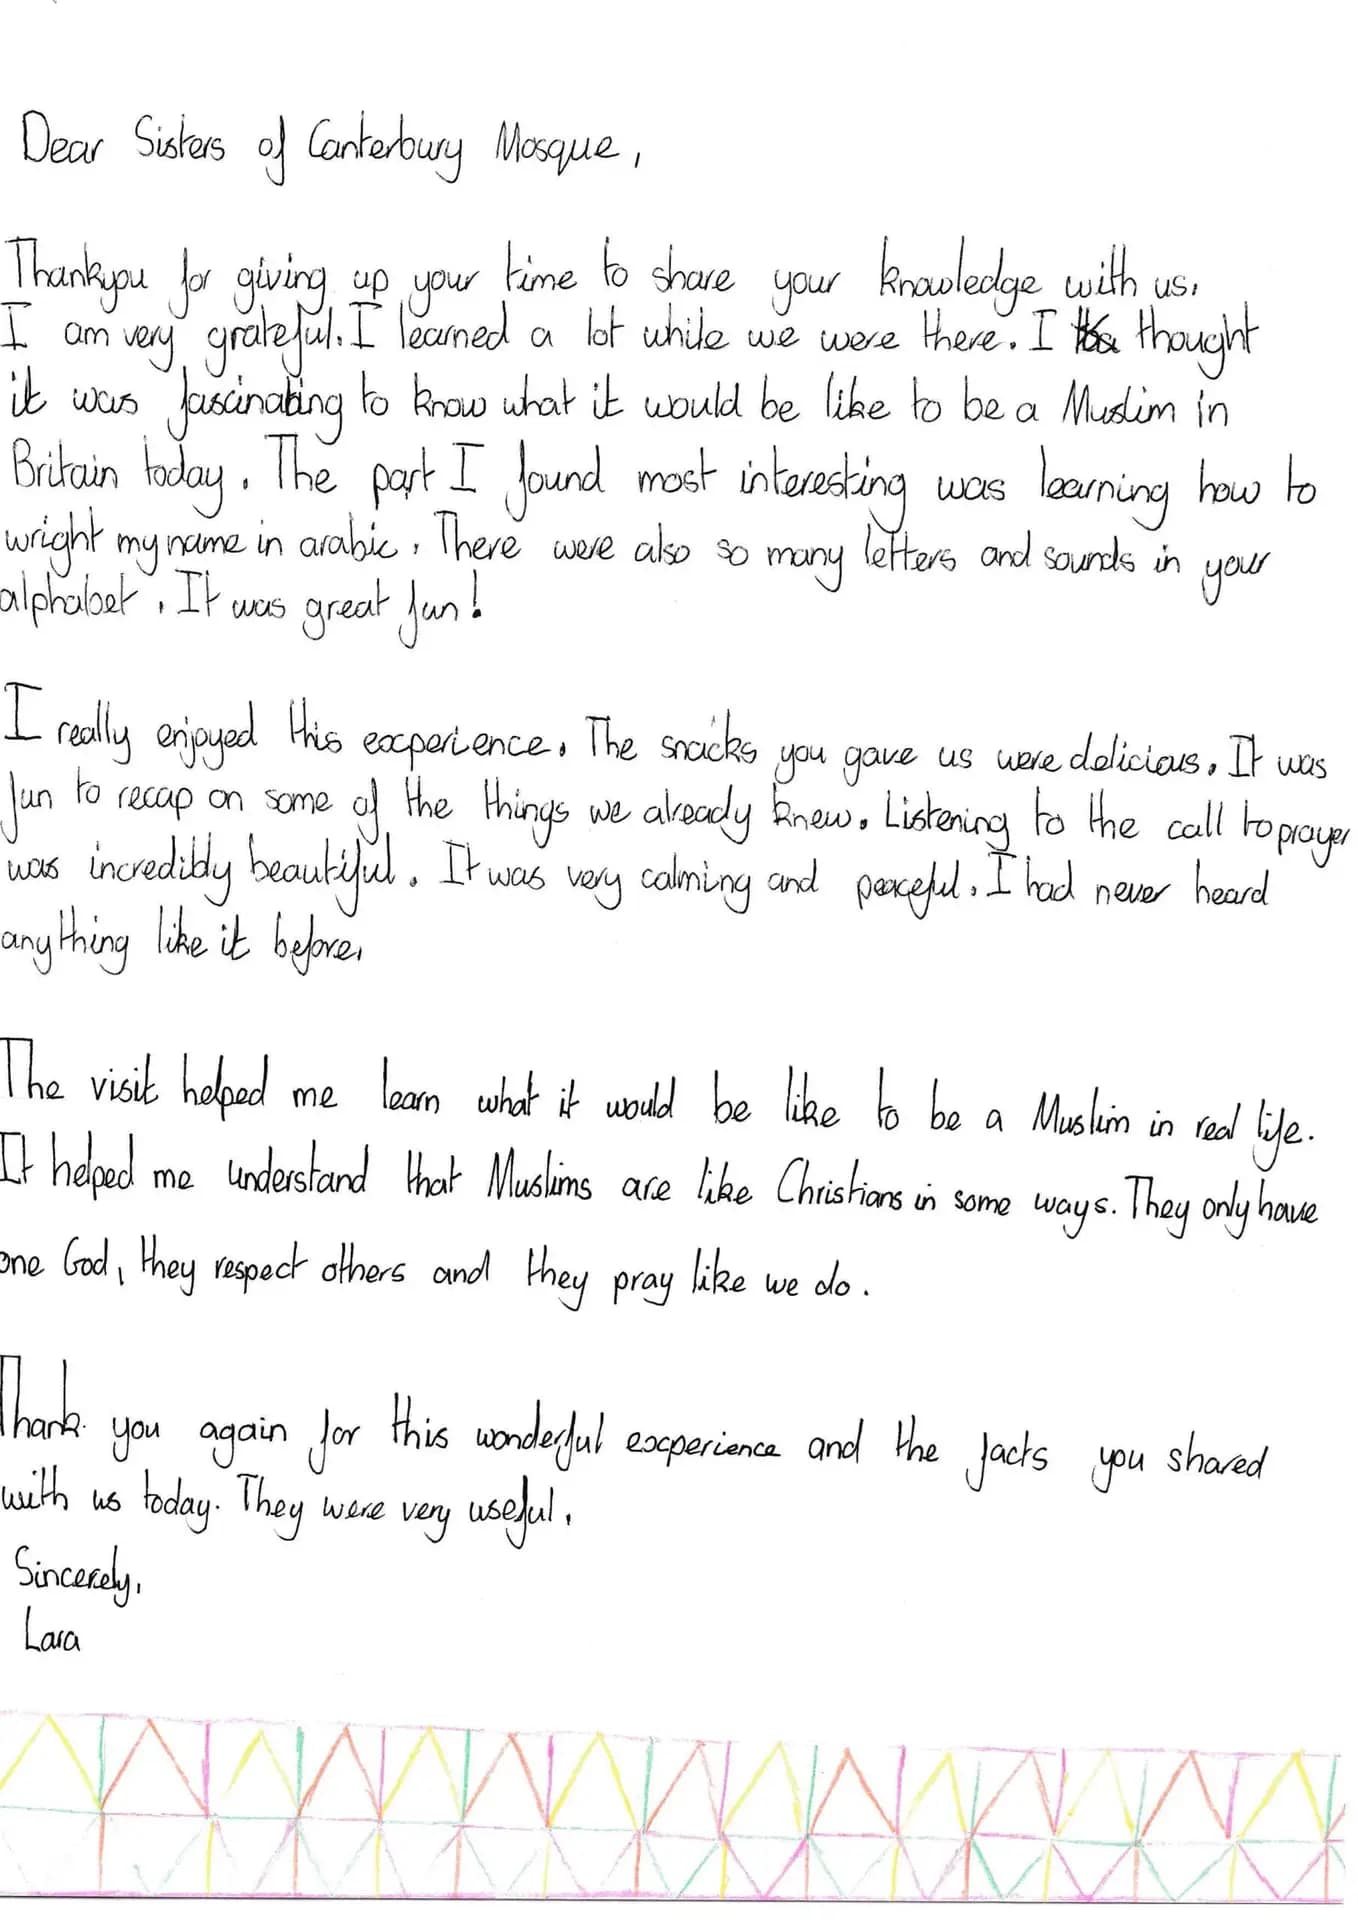 Dear Sisters of Canterbury Mosque,
Thankyou for giving up your time to share your knowledge with us.
I am very grateful. I learned a lot while we were there. I thought
it was fascinating to know what it would be like to be a Muslim in
Britain today. The part I found most interesting was learning how to
wright my name in arabic. There were also so many letters and sounds in your
alphabet. It was great fun!
I really enjoyed this experience. The snacks you gave us were delicious. It was
fun to recap on some of the things we already knew. Listening to the call to prayer
was incredibly beautiful. It was very calming and peaceful. I had never heard
anything like it before.
The visit helped me learn what it would be like to be a Muslim in real life.
It helped me understand that Muslims are like Christians in some ways. They only have
one God, they respect others and they pray like we do.
Thank you again for this wonderful experience and the facts you shared
with us today. They were very useful.
Sincerely,
Lara